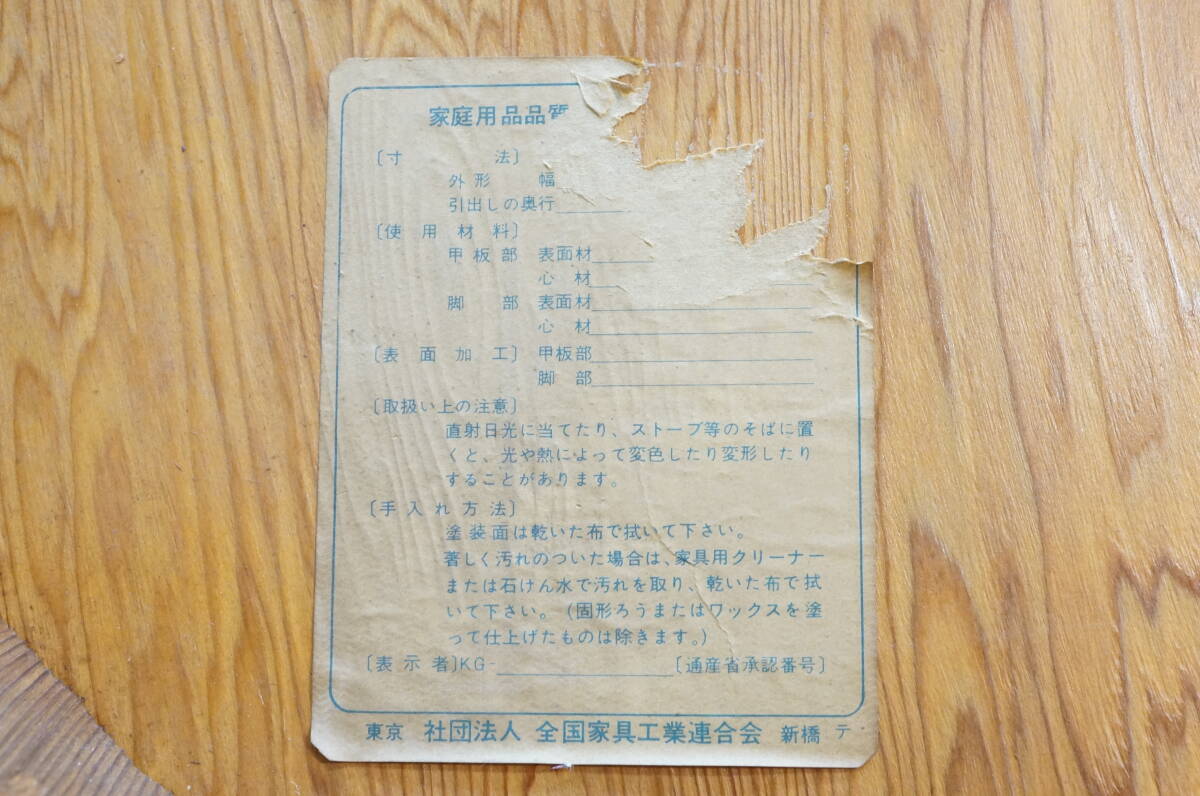 家庭用品品質
〔寸 法〕
外形 幅
引出しの奥行
〔使用材料〕
甲板部 表面材
心材
脚部 表面材
心材
〔表面加工〕 甲板部
脚部
〔取扱い上の注意〕
直射日光に当てたり、ストーブ等のそばに置
くと、光や熱によって変色したり変形したり
することがあります。
〔手入れ方法〕
塗装面は乾いた布で拭いて下さい。
著しく汚れのついた場合は、家具用クリーナー
または石けん水で汚れを取り、乾いた布で拭
いて下さい。(固形ろうまたはワックスを塗
って仕上げたものは除きます。)
〔表示者〕KG- 〔通産省承認番号〕
東京 社団法人 全国家具工業連合会 新橋 テ